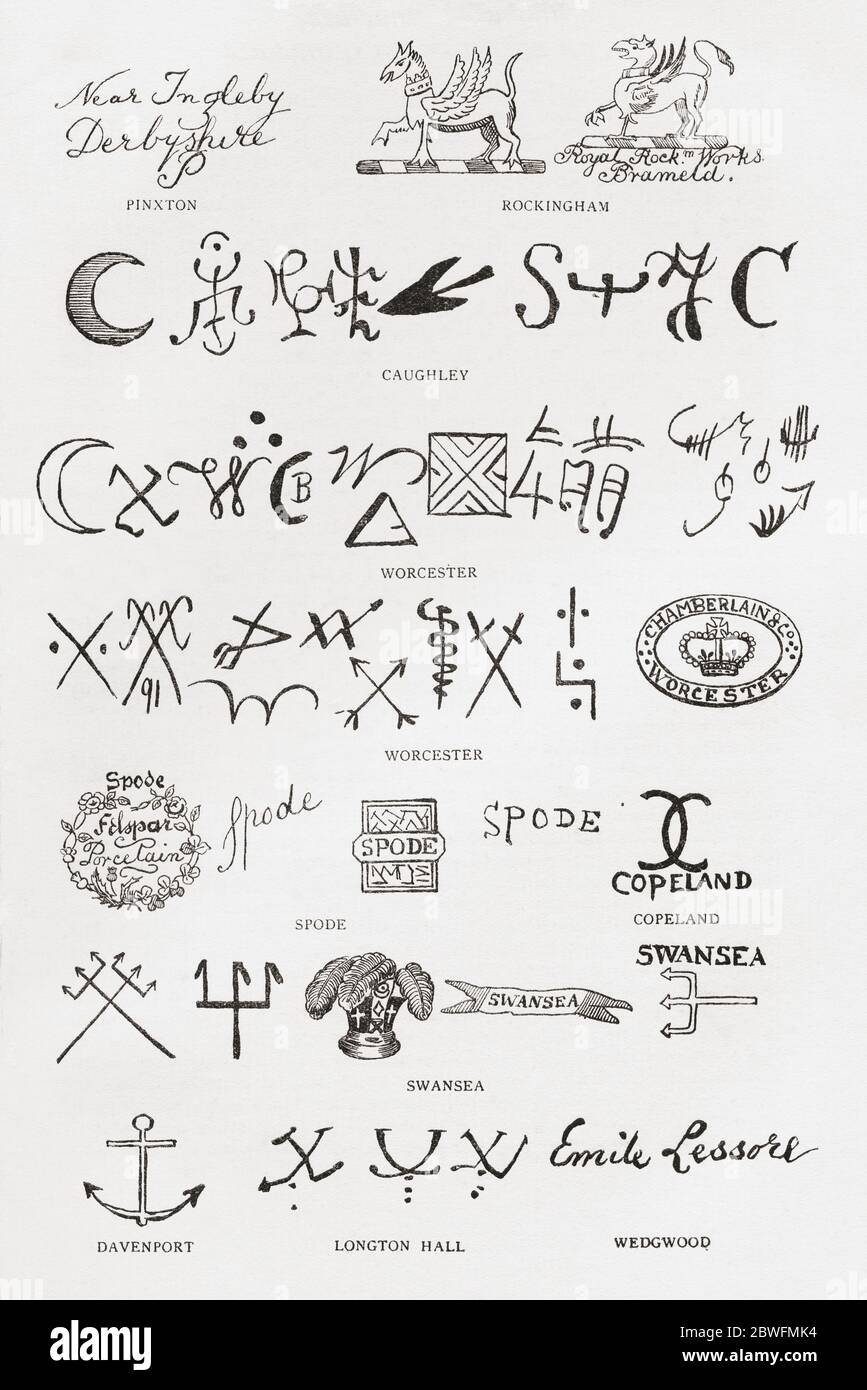 Near Ingleby
Derbyshire
P
PINXTON
Royal Rock.m Works
Brameld.
ROCKINGHAM
S
C
CAUGHLEY
W
C B
WORCESTER
91
CHAMBERLAIN & Co
WORCESTER
WORCESTER
Spode
Felspar
Porcelain
Spode
SPODE
SPODE
SPODE
COPELAND
COPELAND
SWANSEA
SWANSEA
SWANSEA
Emile Lessore
DAVENPORT
LONGTON HALL
WEDGWOOD
alamy
Image ID: 2BWFMK4
www.alamy.com